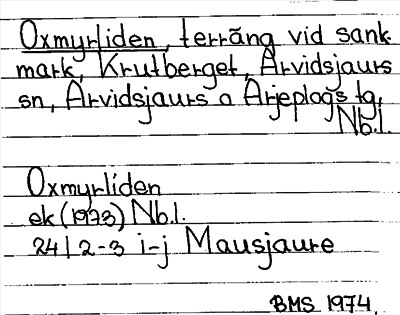 Oxmyrliden, terräng vid sank
mark, Krutberget, Arvidsjaurs
sn, Arvidsjaurs o Arjeplogs tg,
Nb.l.
Oxmyrliden
ek (1973) Nb.l.
24 I 2-3 i-j Mausjaure
BMS 1974.